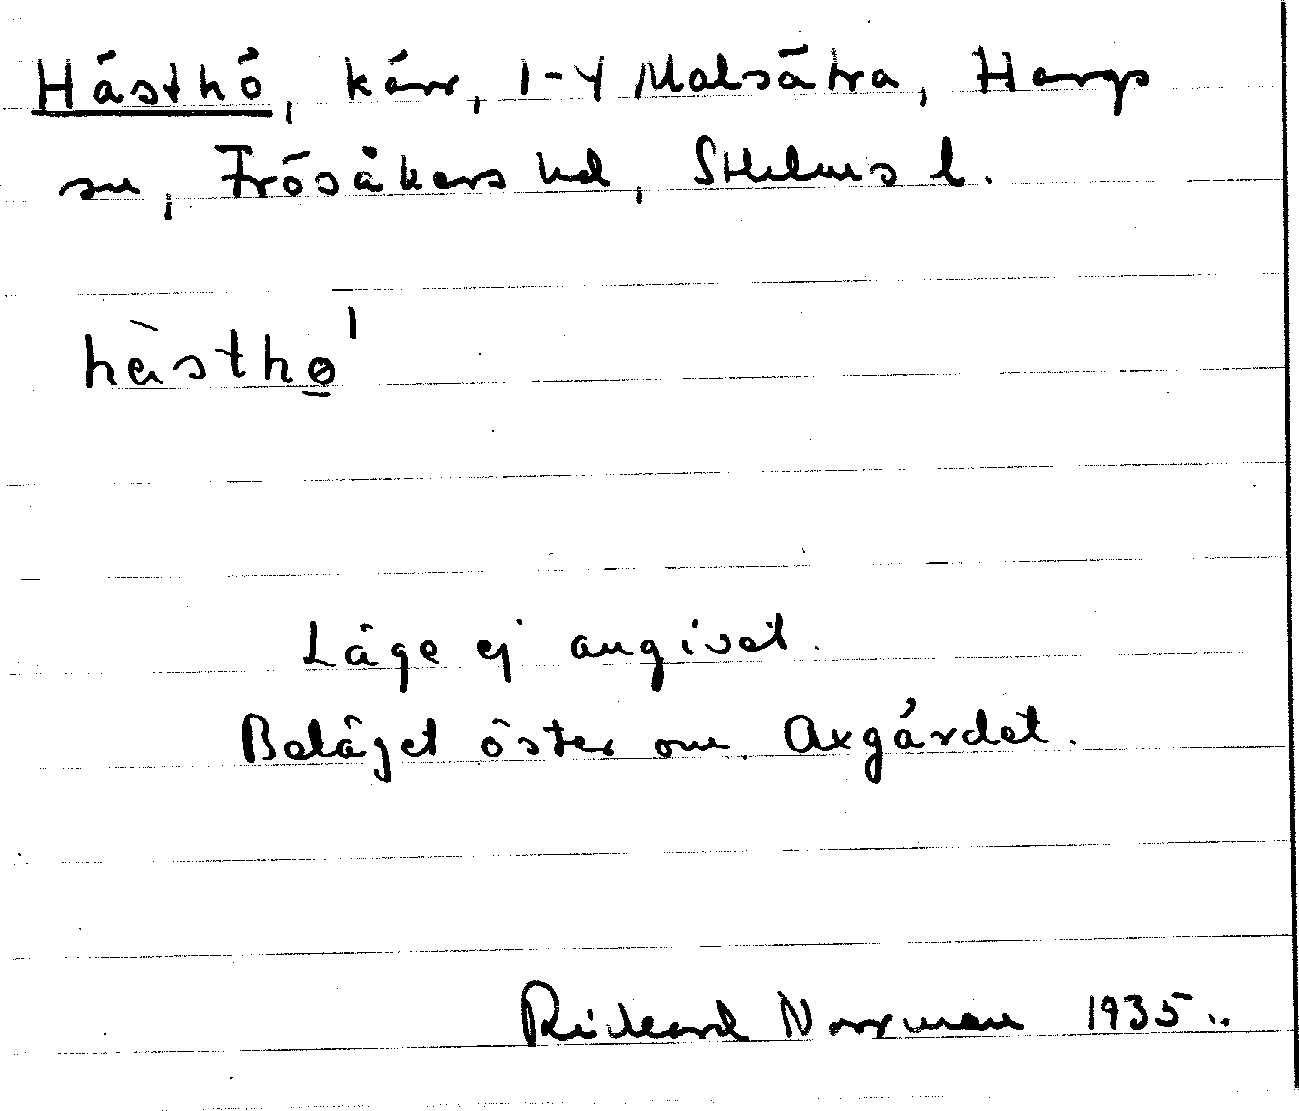 Hästhö, kärr, 1-4 Malsätra, Hargs
sn, Frösåkers hd, Sthlms l.
hàsthø̱ˈ
Läge ej angivet.
Beläget öster om Axgärdet.
Rickard Norrman 1935.